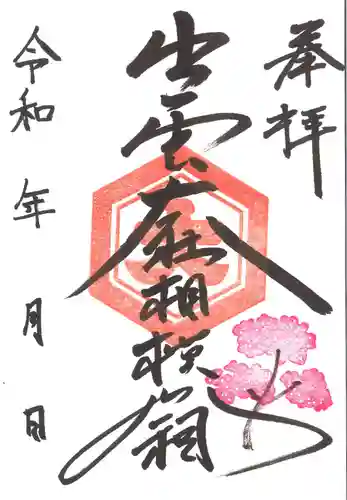 奉拝
出雲大社相模分祠
令和 年 月 日